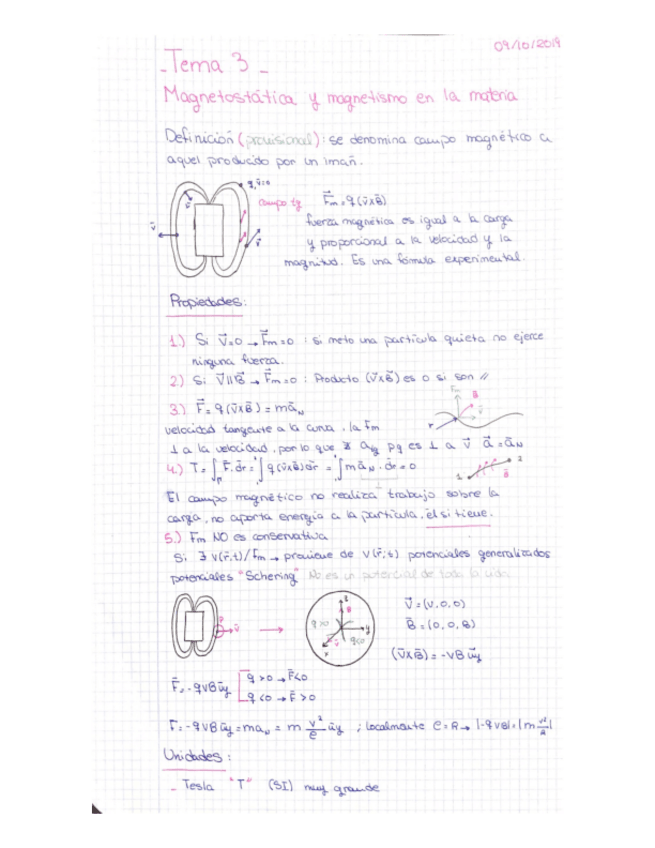 09/10/2019
- Tema 3 -
Magnetostática y magnetismo en la materia
Definición (provisional): se denomina campo magnético a
aquel producido por un imañ.
q, v⃗=0
campo tg
F⃗m = q (v⃗xB⃗)
fuerza magnética es igual a la carga
y proporcional a la velocidad y la
magnitud. Es una fórmula experimental.
Propiedades:
1.) Si V⃗=0 → F⃗m=0 : si meto una partícula quieta no ejerce
ninguna fuerza.
2) Si V⃗ || B⃗ → F⃗m=0 : Producto (v⃗xB⃗) es 0 si son //
3.) F⃗ = q (v⃗xB⃗) = ma⃗N
velocidad tangente a la curva, la Fm
⊥ a la velocidad, por lo que ∄ atg pq es ⊥ a v⃗ a⃗ = a⃗N
4.) T = ∫ F⃗.dr⃗ = ∫ q (v⃗xB⃗)dr⃗ = ∫ ma⃗N . dr⃗ = 0
El campo magnético no realiza trabajo sobre la
carga, no aporta energía a la partícula, él si tiene.
5.) Fm NO es conservativa
Si ∃ V(r⃗,t) / Fm → proviene de V(r⃗,t) potenciales generalizados
potenciales "Schering" No es un potencial de toda la vida.
V⃗ = (v, 0, 0)
B⃗ = (0, 0, B)
(v⃗xB⃗) = -VB u⃗y
q>0
q<0
F⃗ = -qVB u⃗y
q > 0 → F⃗<0
q < 0 → F⃗ > 0
F = -qVB u⃗y = maN = m v²/ρ u⃗y ; localmente ρ = R → |-qVB| = |m v²/R|
Unidades:
- Tesla "T" (SI) muy grande